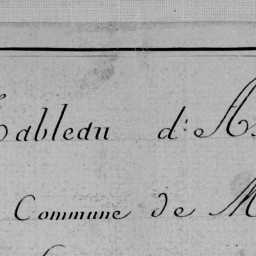 Tableau d'A
Commune de M